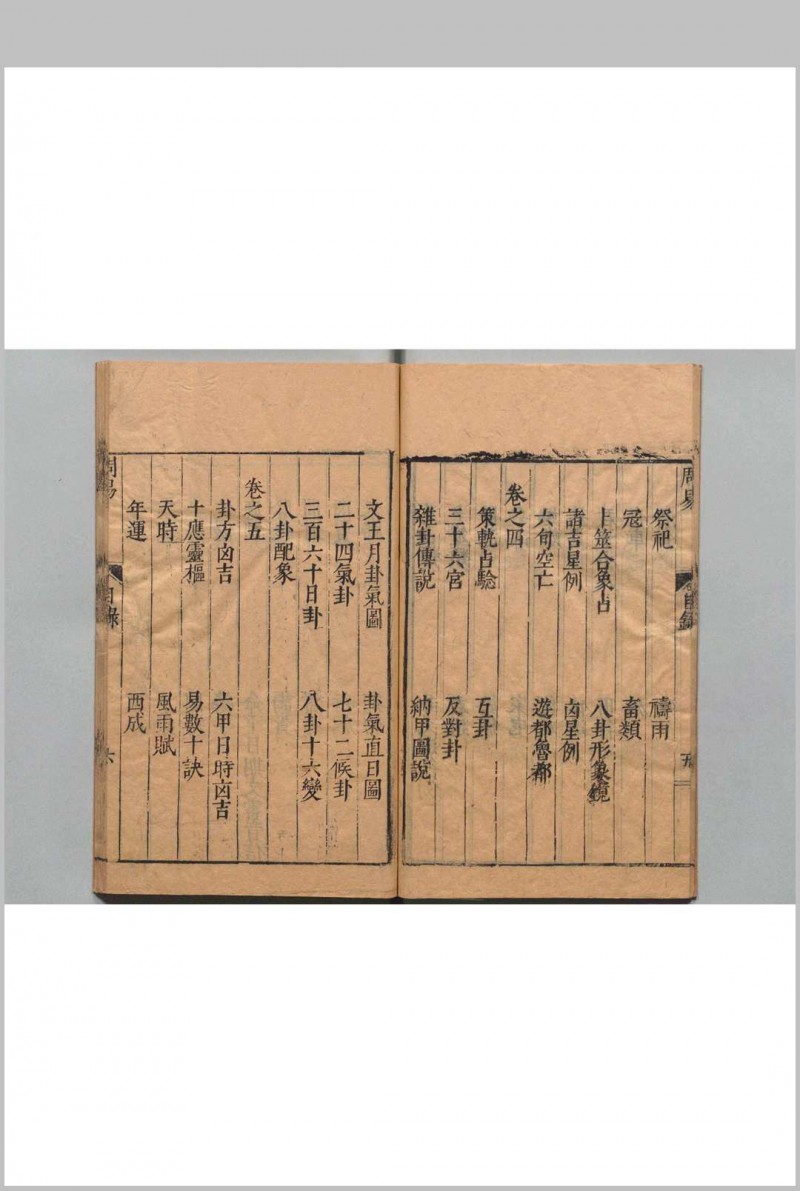 周易
目錄
五
祭祀　禱雨
冠　畜類
卜筮合象占　八卦形象鏡
諸吉星例　卤星例
六甸空亡　遊都魯都
卷之四
策軌占驗　互卦
三十六宮　反對卦
雜卦傳說　納甲圖說
文王月卦氣圖　卦氣直日圖
二十四氣卦　七十二候卦
三百六十日卦　八卦十六變
八卦配象
卷之五
卦方凶吉　六甲日時凶吉
十應靈樞　易數十訣
天時　風雨賦
年運　西成
周易
目錄
六